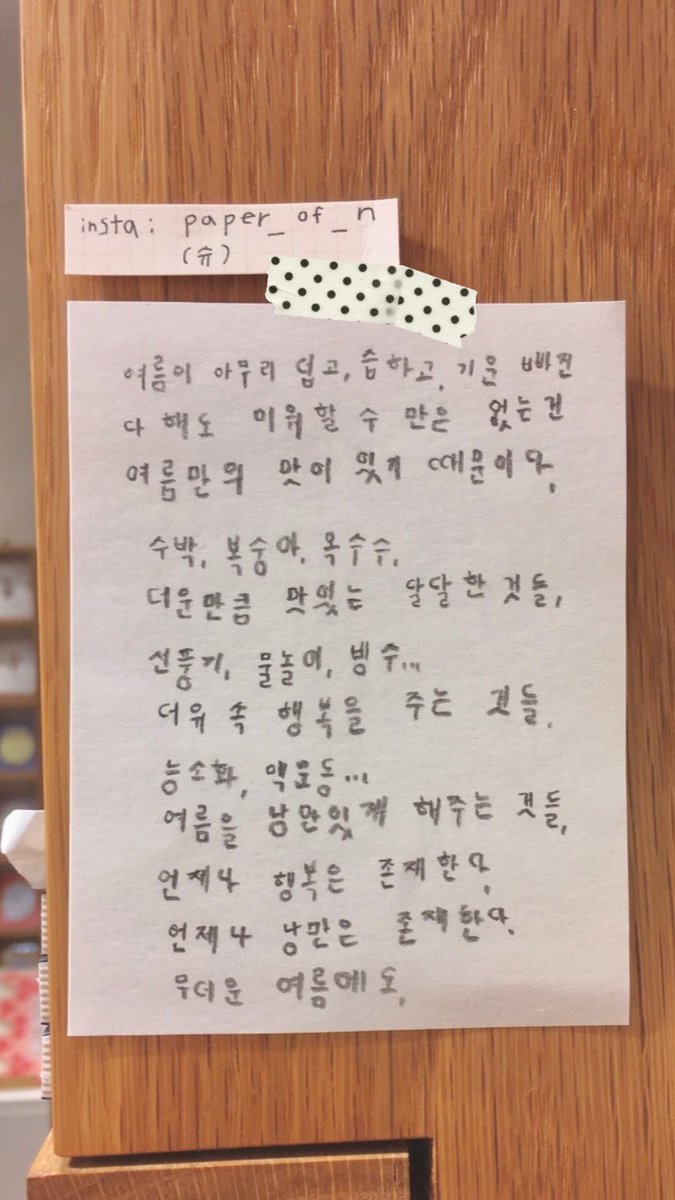 insta: paper_of_n
(슈)
여름이 아무리 덥고, 습하고, 기운 빠진
다 해도 미워할 수 만은 없는건
여름만의 맛이 있기 때문이다.
수박, 복숭아, 옥수수,
더운만큼 맛있는 달달한 것들,
선풍기, 물놀이, 빙수...
더위 속 행복을 주는 것들.
능소화, 맥문동...
여름을 낭만있게 해주는 것들,
언제나 행복은 존재한다.
언제나 낭만은 존재한다.
무더운 여름에도.